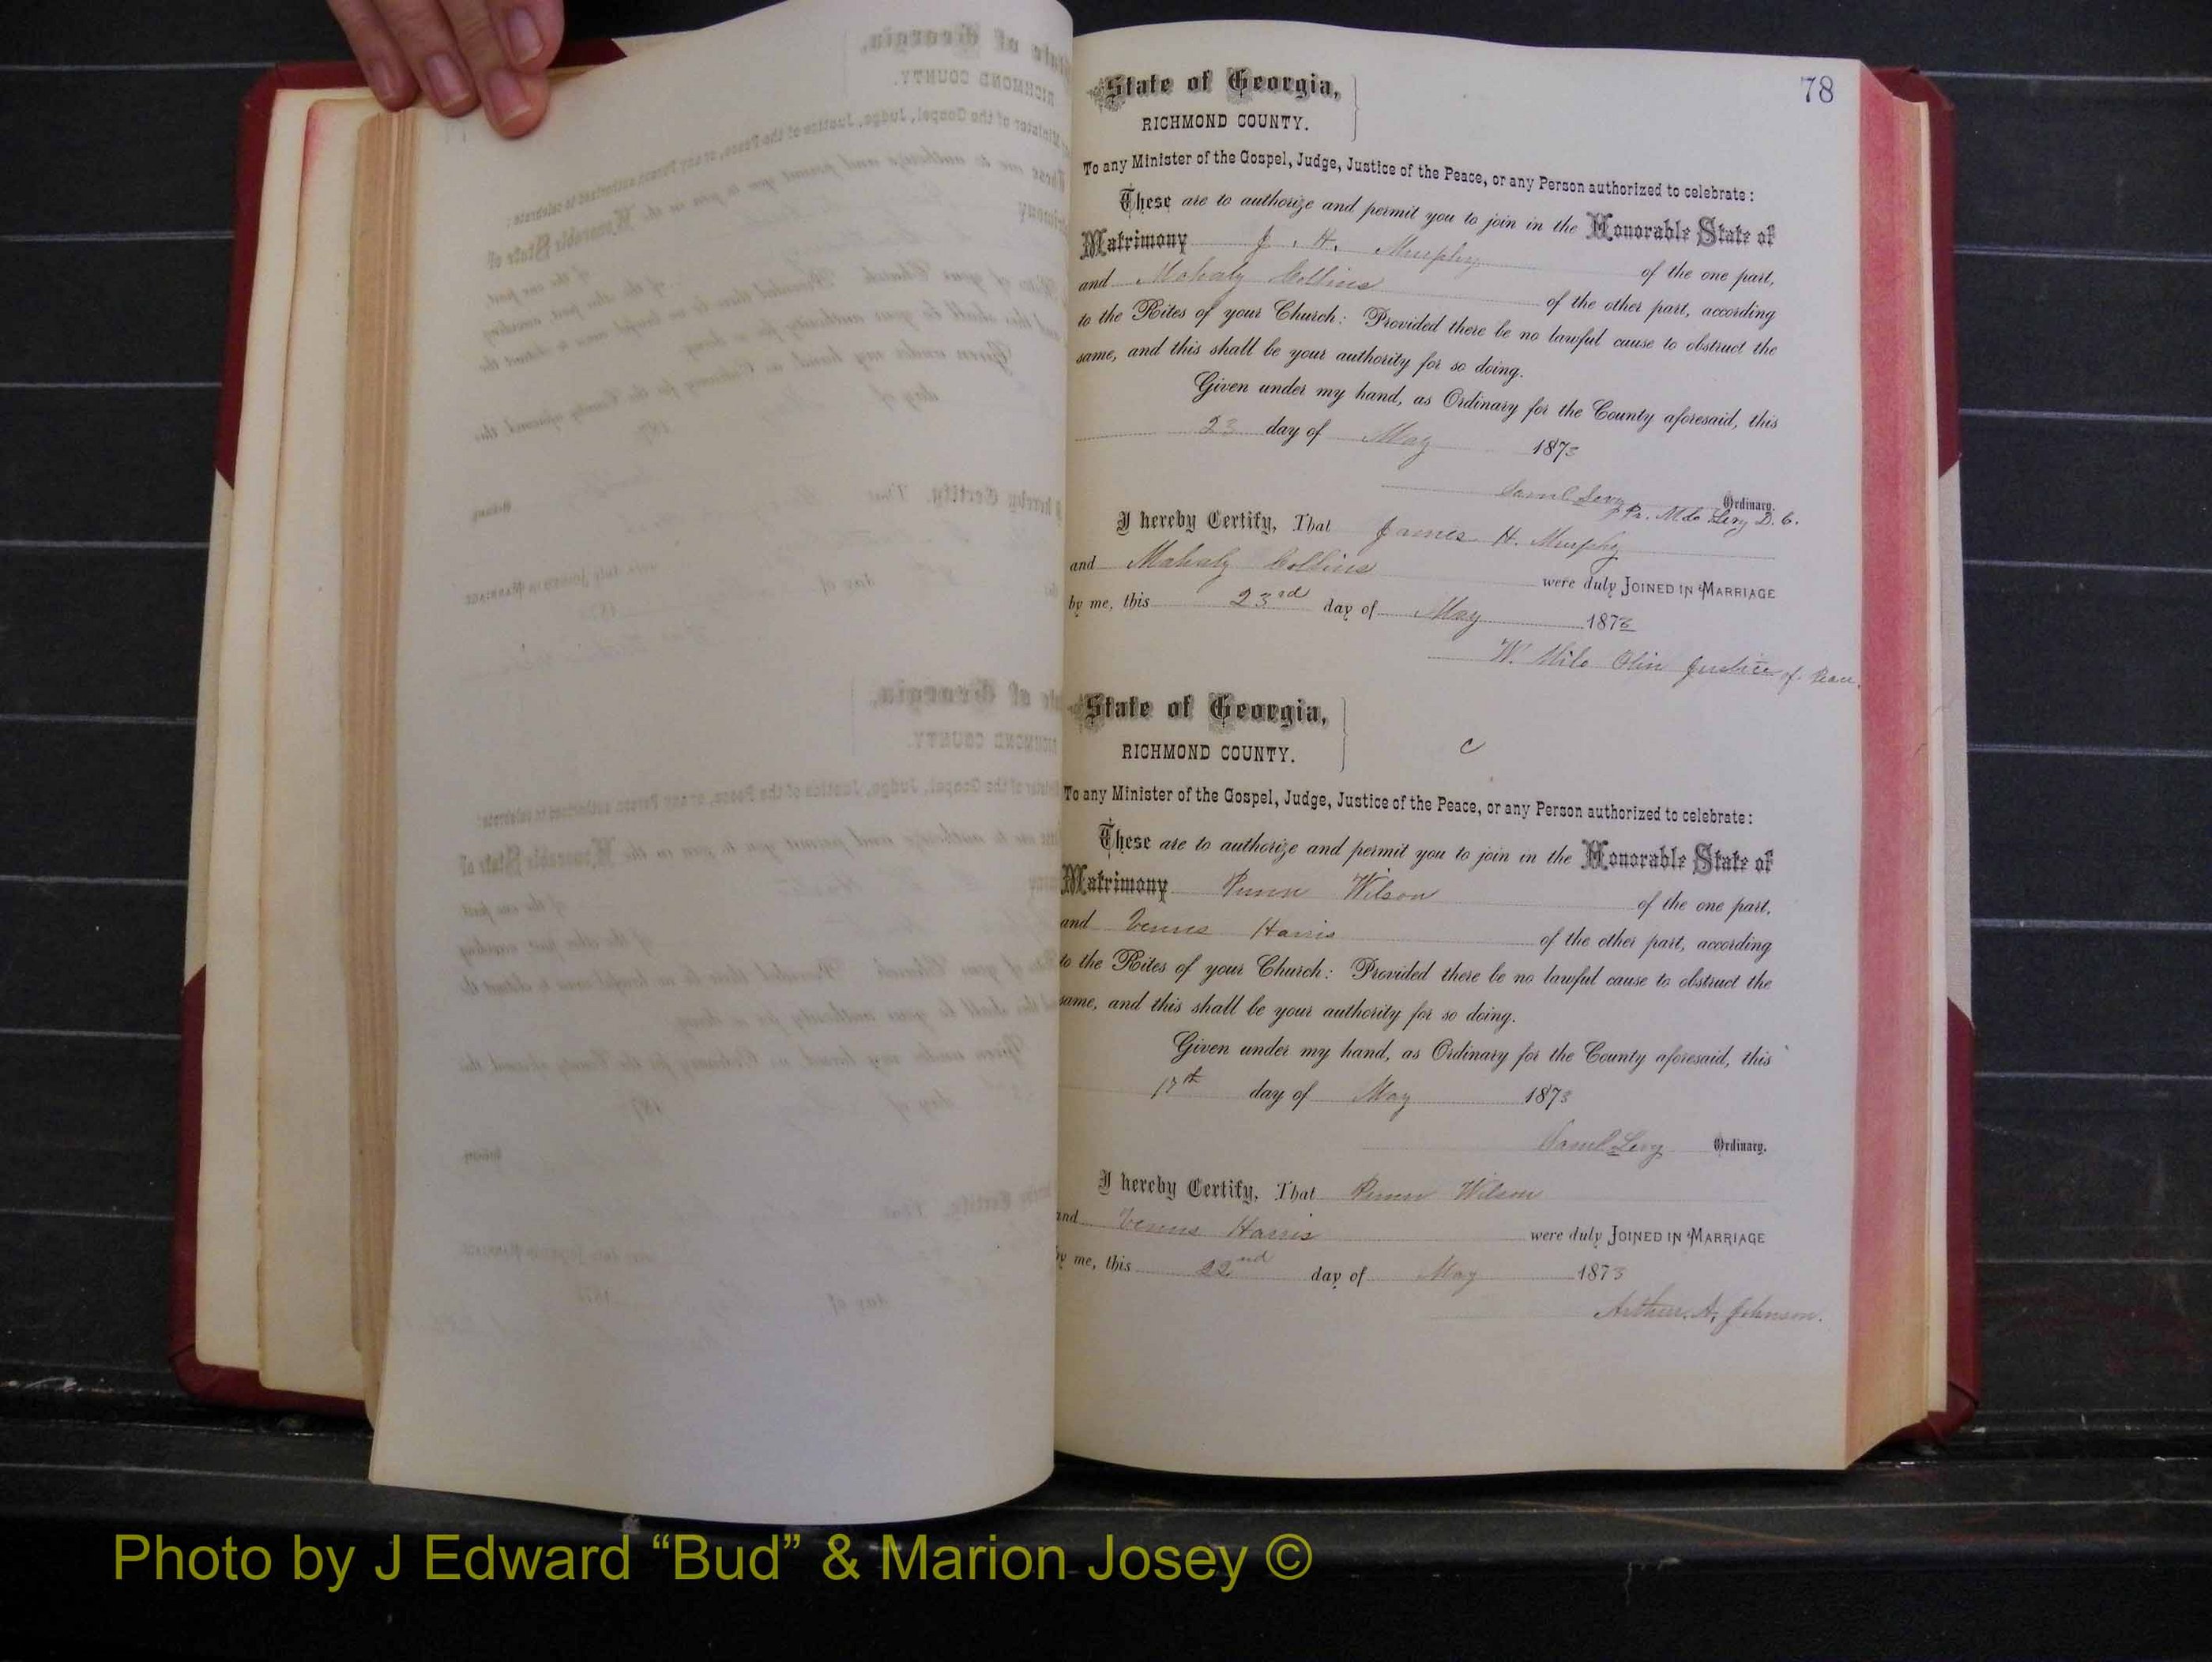 78
State of Georgia,
RICHMOND COUNTY.
To any Minister of the Gospel, Judge, Justice of the Peace, or any Person authorized to celebrate:
These are to authorize and permit you to join in the Honorable State of
Matrimony J. H. Murphy of the one part,
and Mahaly Collins of the other part, according
to the Rites of your Church: Provided there be no lawful cause to obstruct the
same, and this shall be your authority for so doing.
Given under my hand, as Ordinary for the County aforesaid, this
23 day of May 1873
Saml Levy Ordinary.
Levy D. C.
I hereby Certify, That James H. Murphy
and Mahaly Collins were duly JOINED IN MARRIAGE
by me, this 23rd day of May 1873
W. Milo Olin Justice of Peace.
State of Georgia,
RICHMOND COUNTY.
C
To any Minister of the Gospel, Judge, Justice of the Peace, or any Person authorized to celebrate:
These are to authorize and permit you to join in the Honorable State of
Matrimony Wilson of the one part,
and Venus Harris of the other part, according
to the Rites of your Church: Provided there be no lawful cause to obstruct the
same, and this shall be your authority for so doing.
Given under my hand, as Ordinary for the County aforesaid, this
17th day of May 1873
Saml Levy Ordinary.
I hereby Certify, That Wilson
and Venus Harris were duly JOINED IN MARRIAGE
by me, this 22nd day of May 1873
Arthur. A. Johnson.
Photo by J Edward “Bud” & Marion Josey ©